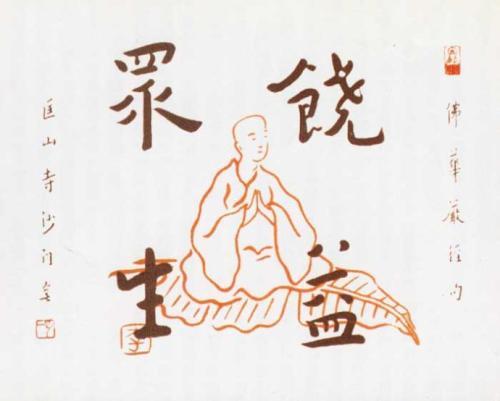 佛華嚴經句
饒益
眾生
匡山寺沙门